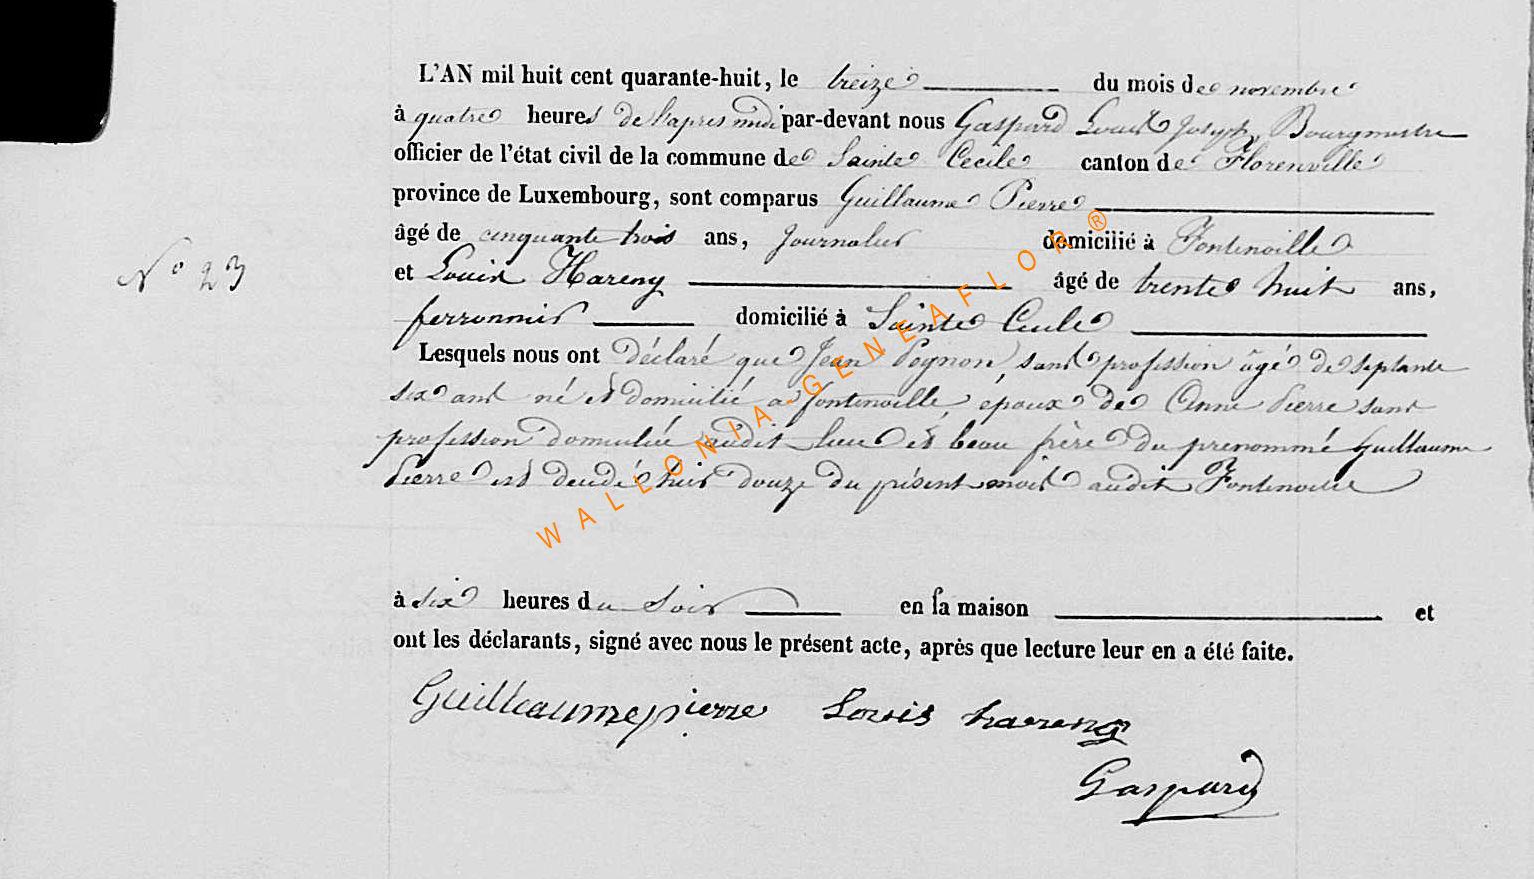 L'AN mil huit cent quarante-huit, le treize du mois de novembre
à quatre heures de l'apres midi par-devant nous Gaspard Louis Joseph, Bourgmestre
officier de l'état civil de la commune de Sainte Cecile canton de Florenville
province de Luxembourg, sont comparus Guillaume Pierre
âgé de cinquante trois ans, Journalier domicilié à Fontenoille
N° 23
et Louis Hareng âgé de trente huit ans,
ferronnier domicilié à Sainte Cecile
Lesquels nous ont déclaré que Jean Pognon, sans profession âgé de septante
six ans né et domicilié a fontenoille, époux de Anne Pierre sans
profession domiciliée audit lieu et beau frère du prenommé Guillaume
Pierre est decedé hier douze du présent mois audit Fontenoille
WALLONIA-GENEAFLOR®
à six heures du soir en sa maison et
ont les déclarants, signé avec nous le présent acte, après que lecture leur en a été faite.
Guilleaume pierre Louis hareng
Gaspard